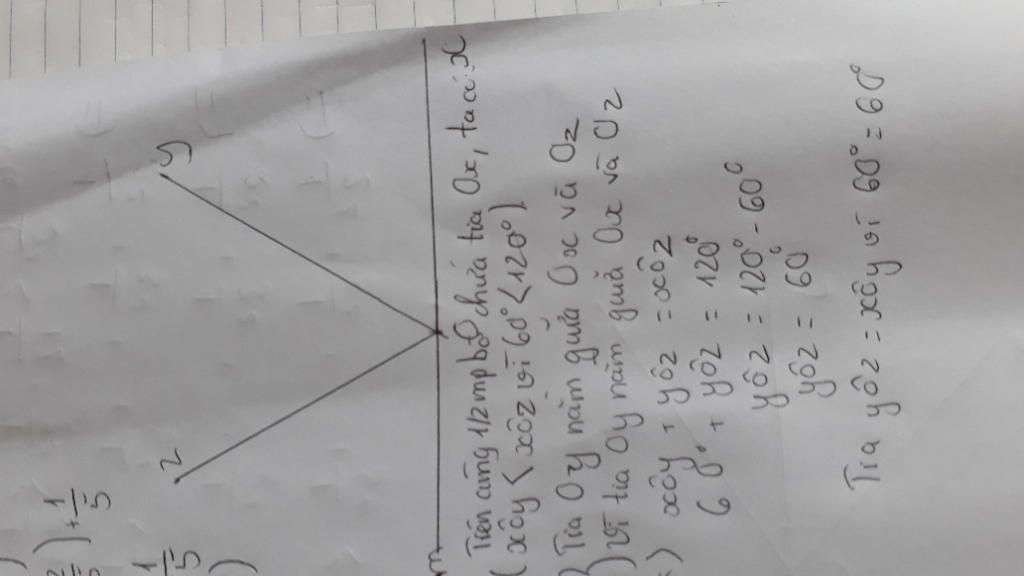 z
y
x
m
Trên cùng 1/2 mp bờ chứa tia Ox, ta có:
( xôy < xôz vì 60° < 120° )
Tia Oy nằm giữa Ox và Oz
) vì tia Oy nằm giữa Ox và Oz
xôy + yôz = xôz
60° + yôz = 120°
yôz = 120° - 60°
yôz = 60°
Tia yôz = xôy vì 60° = 60°
) + 1/5
1/5
)